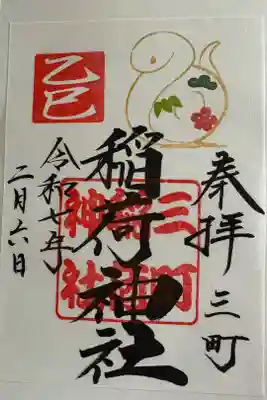 奉拝 三町
稲荷神社
三町
稲荷
神社
乙巳
令和七年
二月六日